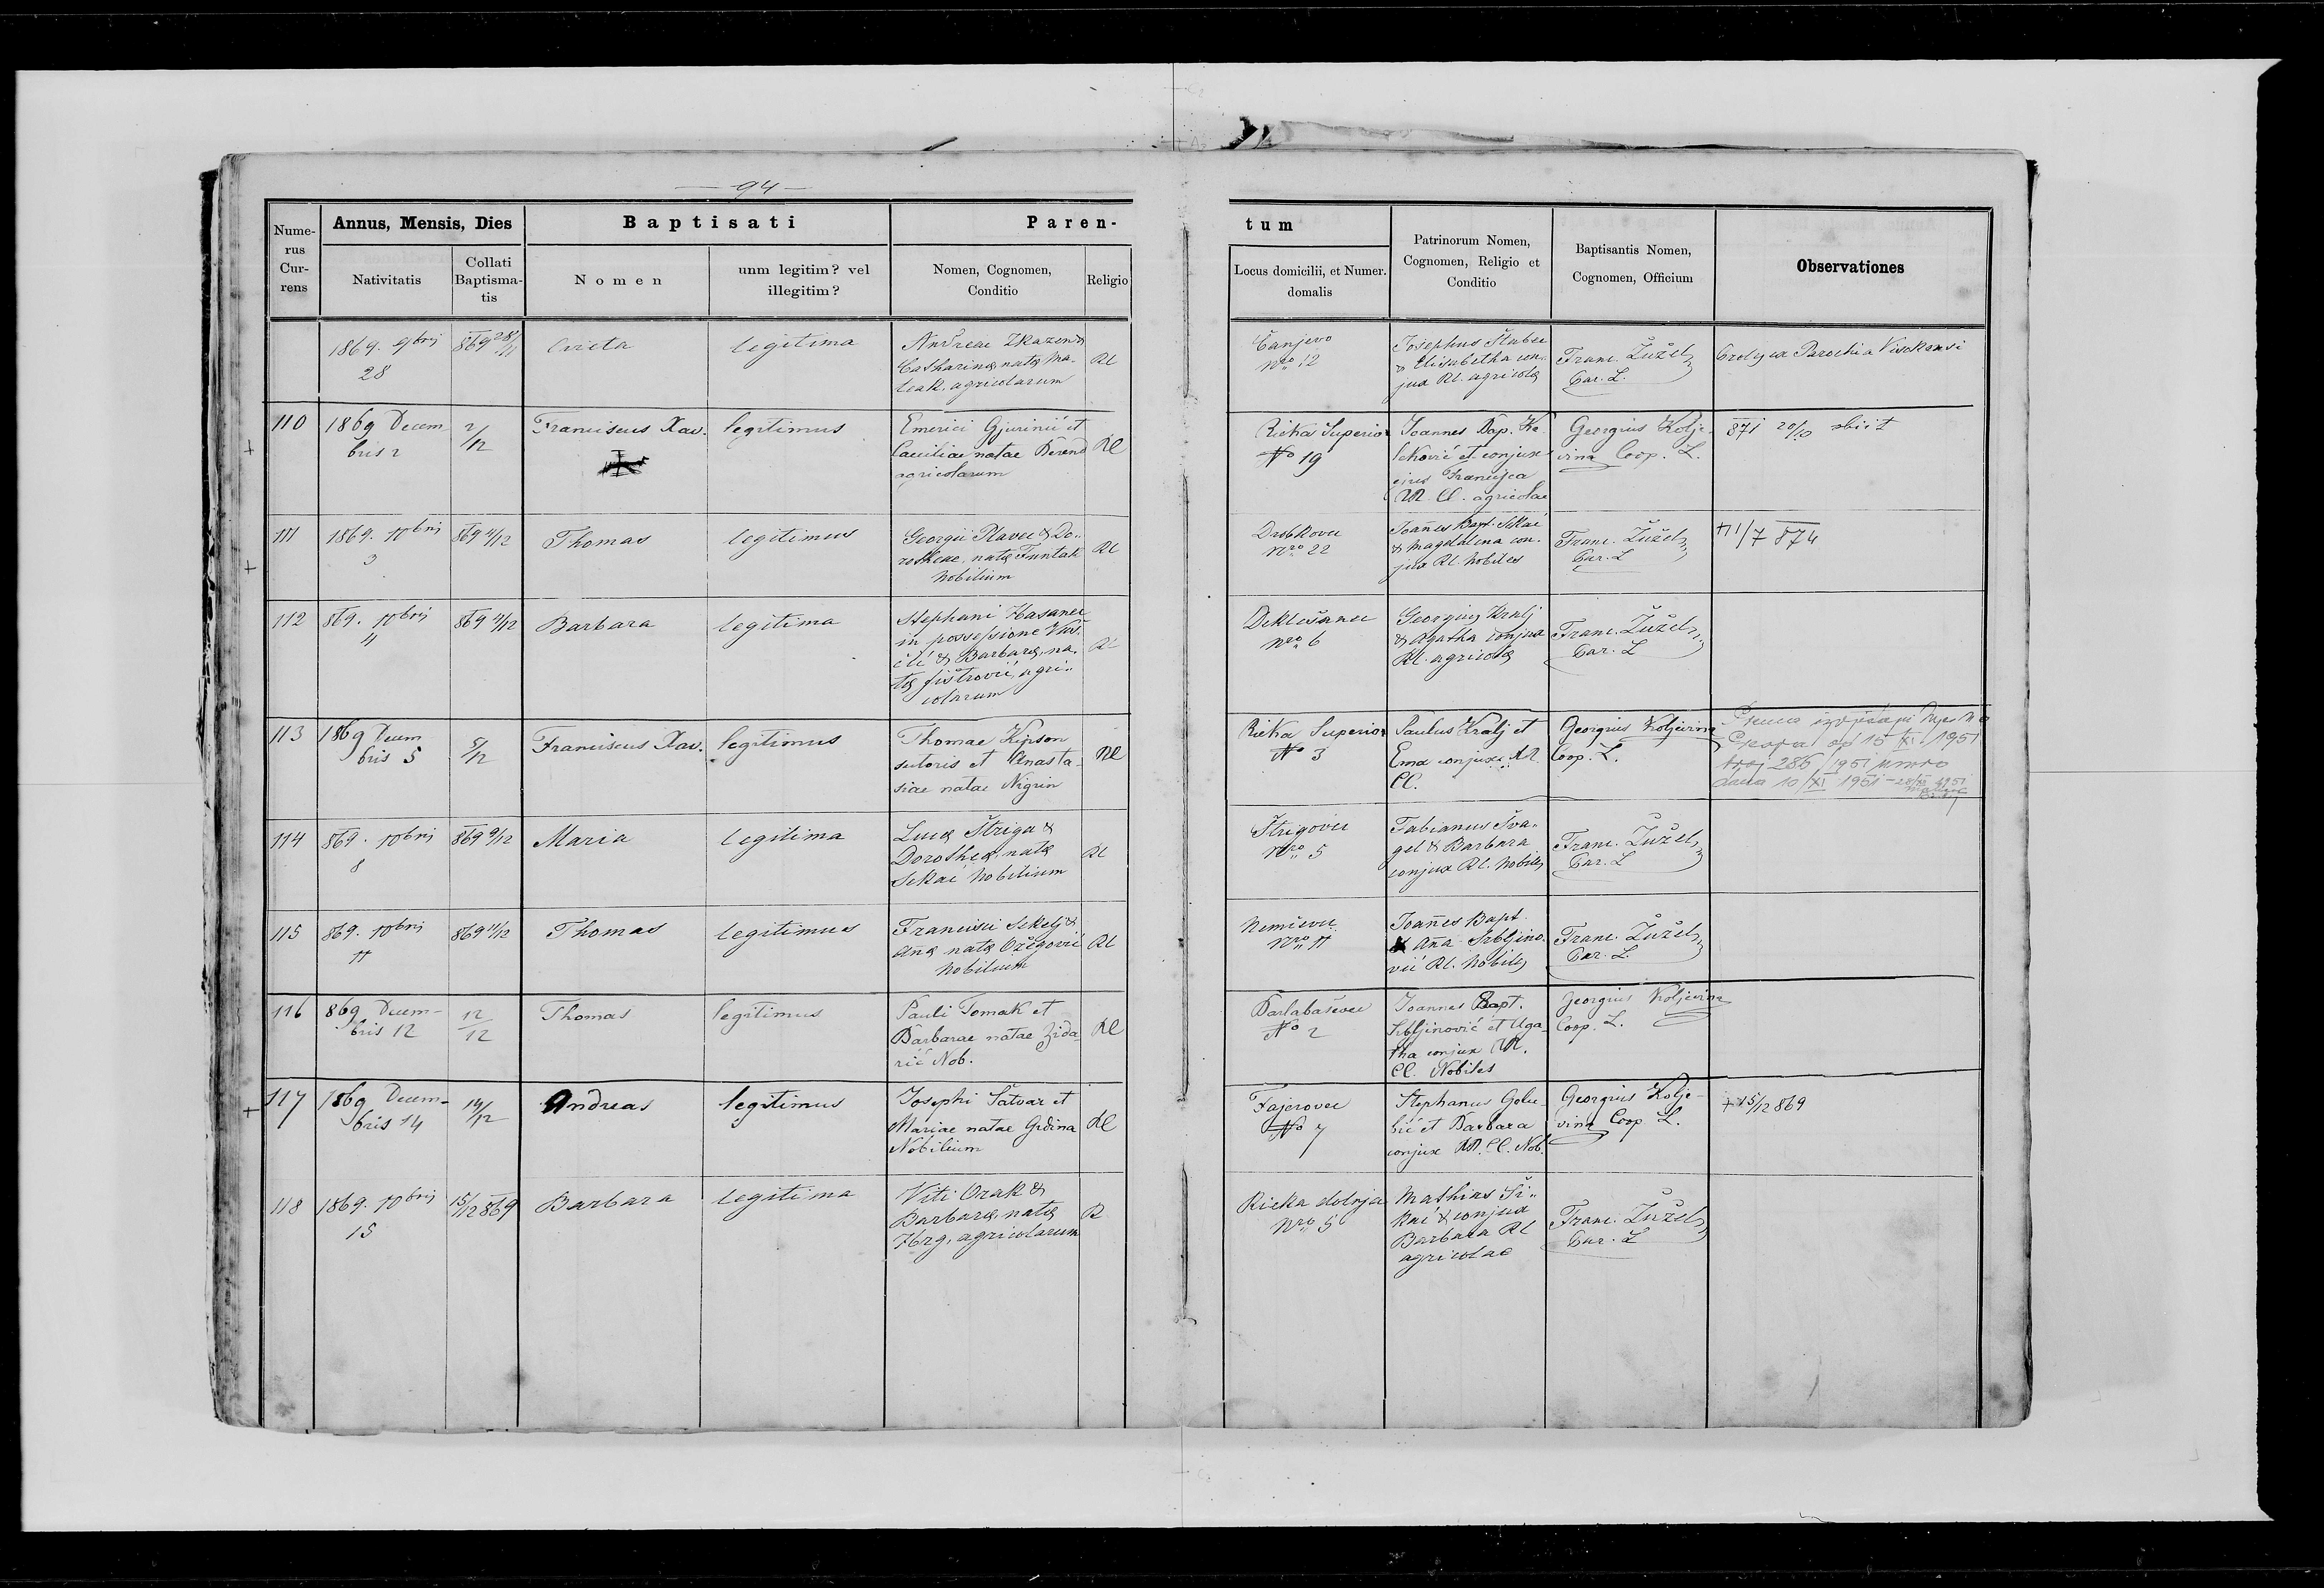 — 94 —
Nume-
rus
Cur-
rens
Annus, Mensis, Dies
Nativitatis
Collati
Baptisma-
tis
Baptisati
Nomen
unm legitim? vel
illegitim?
Paren-
Nomen, Cognomen,
Conditio
Religio
tum
Locus domicilii, et Numer.
domalis
Patrinorum Nomen,
Cognomen, Religio et
Conditio
Baptisantis Nomen,
Cognomen, Officium
Observationes
1869. 9bris
28
869 28/11
Cvieta
legitima
Andreae
Catharinæ, natæ Ma-
agricolarum
Rc
Čanjevo
Nro 12
Josephus Štabec
& Elisabetha con-
jux Rc. agricolæ
Franc. Žužel
Par. L.
Prolyca Parochia Visokensi
110
1869 Decem
bris 2
2/12
Franciscus Xav.
legitimus
Emerici Gjurinić et
Caeciliae natae
agricolarum
RC
Rieka Superior
No 19
Joannes Bap. Ke-
leković et conjux
ejus Francisca
RR. CC. agricolae
Georgius Kolje-
vina Coop. L.
871 20/10 obiit
111
1869. 10bris
3
869 4/12
Thomas
legitimus
Georgii Plavec & Do-
rotheae, natæ Funtak
Nobilium
Rc
Drobkovec
Nro 22
Joañes Bapt. Sekač
& Magdalena con-
jux Rc. Nobiles
Franc. Žužel
Par. L
+ 11/7 874
112
869. 10bris
4
869 4/12
Barbara
legitima
Stephani Hasanec
in possessione Vur-
& Barbaræ, na-
tæ Fistrović, agri-
colarum
Deklešanec
Nro 6
Georgius Kralj
& Agatha conjux
Rc. agricolæ
Franc. Žužel
Par. L
113
1869 Decem
bris 5
5/12
Franciscus Xav.
legitimus
Thomae Kipson
sutoris et Anasta-
siae natae Nigrin
RC
Rieka Superior
No 3
Paulus Kralj et
Ema conjuxe RR.
CC.
Georgius Koljevina
Coop. L.
od 15/XI. 1951
broj 286/1951 umro
dana 10/XI 1951
114
869. 10bris
8
869 9/12
Maria
legitima
Lucæ Štriga &
Dorotheæ, natæ
Sekač Nobilium
Rc
Štrigovec
Nro 5
Fabianus Šva-
gel & Barbara
conjux Rc. Nobiles
Franc. Žužel
Par. L
115
869. 10bris
11
869 11/12
Thomas
legitimus
Francisci Sekelj &
Añæ natæ Ožegović
Nobilium
Rc
Nemčevec
Nro 11
Joañes Bapt.
& Aña Srbljino-
vić Rc. Nobiles
Franc. Žužel
Par. L.
116
869 Decem-
bris 12
12/12
Thomas
legitimus
Pauli Tomak et
Barbarae natae Zida-
rić Nob.
RC
Barlabaševec
No 2
Joannes Bapt.
Srbljinović et Aga-
tha conjux RR.
CC. Nobiles
Georgius Koljevina
Coop. L.
117
1869 Decem-
bris 14
14/12
Andreas
legitimus
Josephi Šatvar et
Mariae natae Grdina
Nobilium
RC
Fajerovec
No 7
Stephanus Golu-
bić et Barbara
conjux RR. CC. Nob.
Georgius Kolje-
vina Coop L.
+ 15/12 869
118
1869. 10bris
15
15/12 869
Barbara
legitima
Viti Orak &
Barbaræ, natæ
Hrg, agricolarum
R
Rieka dolnja
Nro 5
Mathias Si-
kač & conjux
Barbara Rc
agricolae
Franc. Žužel
Par. L